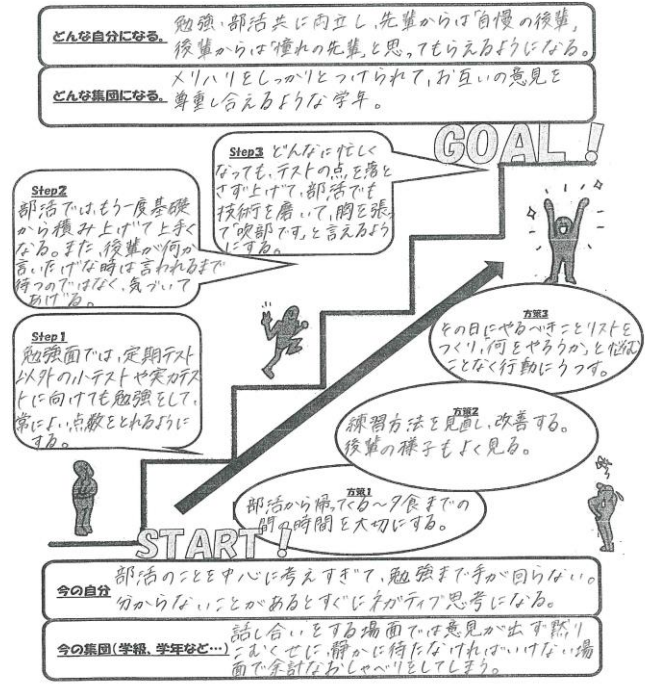 どんな自分になる。
勉強・部活共に両立し、先輩からは「自慢の後輩」
後輩からは「憧れの先輩」と思ってもらえるようになる。
どんな集団になる。
メリハリをしっかりとつけられて、お互いの意見を
尊重し合えるような学年。
GOAL!
Step3 どんなに忙しく
なっても、テストの点を落と
さず上げて、部活でも
技術を磨いて、胸を張っ
て「吹部です」と言えるよう
にする。
Step2
部活では、もう一度基礎
から積み上げて上手く
なる。また、後輩が何か
言いたげな時は言われるまで
待つのではなく、気づいて
あげる。
Step1
勉強面では、定期テスト
以外の小テストや実力テス
トに向けても勉強をして、
常によい点数をとれるように
する。
方策3
その日にやるべきことリストを
つくり、「何をやろうか」と悩む
ことなく行動にうつす。
方策2
練習方法を見直し、改善する。
後輩の様子もよく見る。
方策1
部活から帰ってくる〜夕食までの
間の時間を大切にする。
START!
今の自分
部活のことを中心に考えすぎて、勉強まで手が回らない。
分からないことがあるとすぐにネガティブ思考になる。
今の集団(学級、学年など…)
話し合いをする場面では意見が出ず黙り
こむくせに、静かに待たなければいけない場
面で余計なおしゃべりをしてしまう。